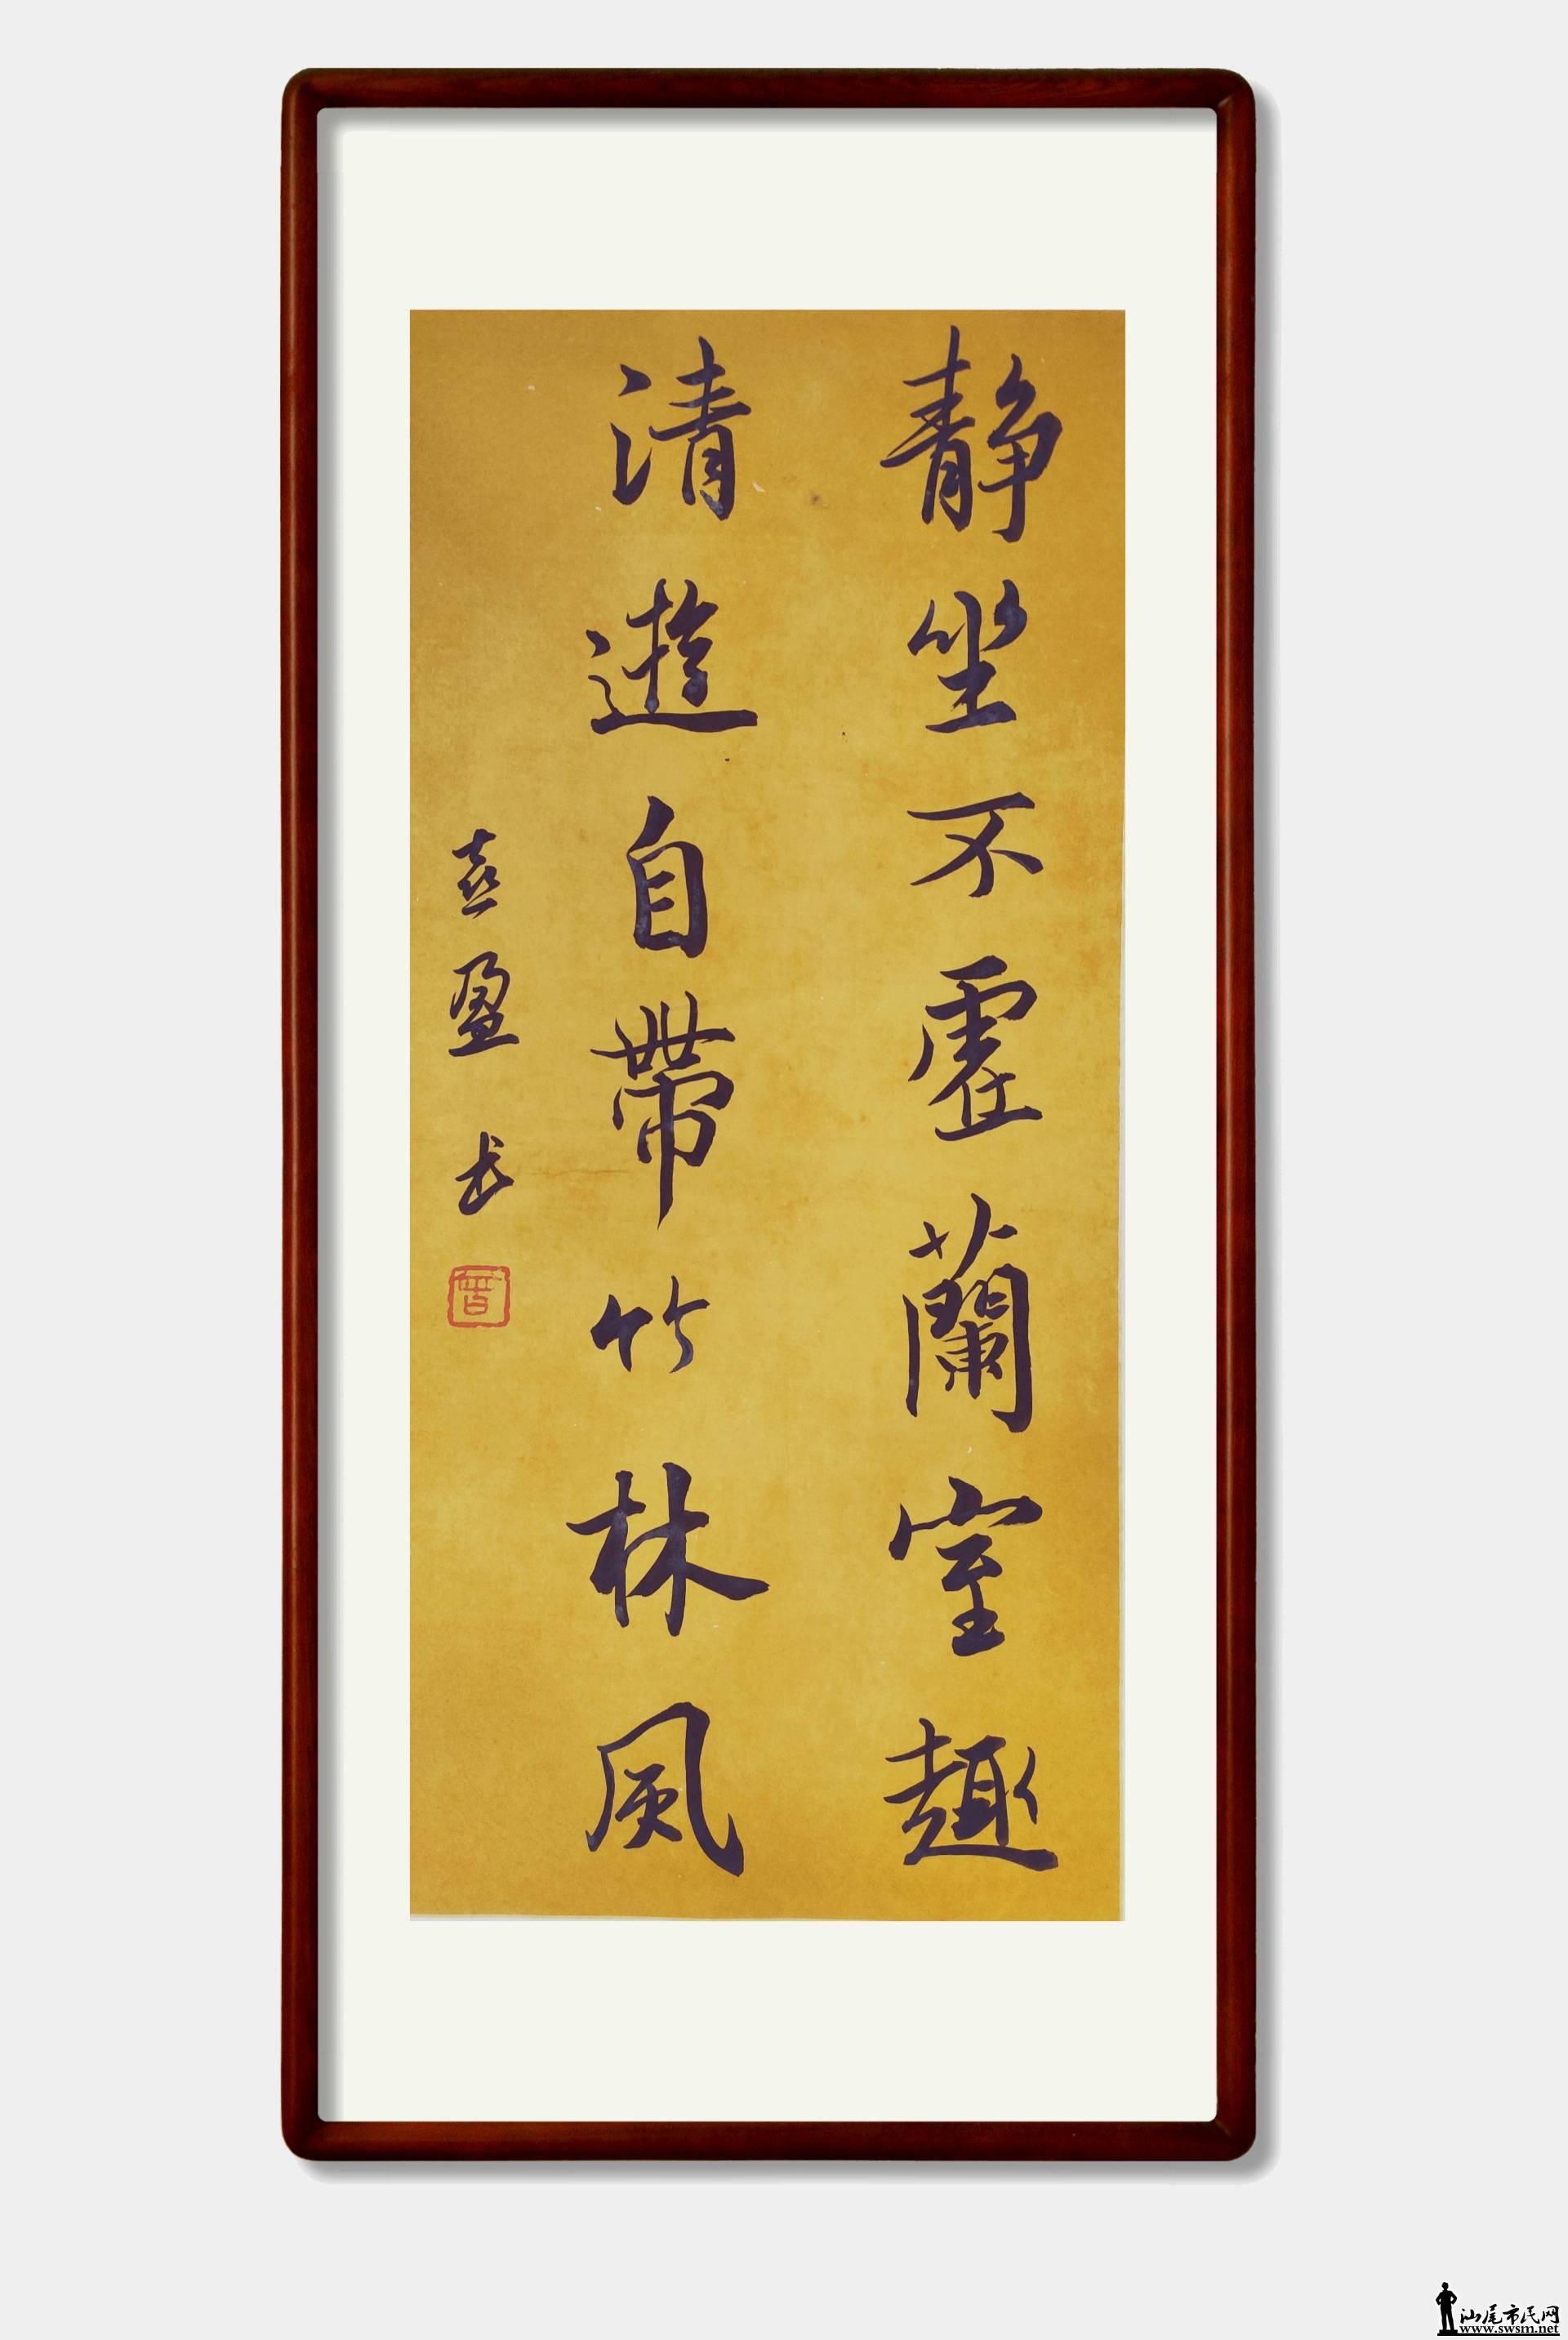 静坐不虚蘭室趣
清遊自帶竹林風
喜盈书
汕尾市民网
www.swsm.net